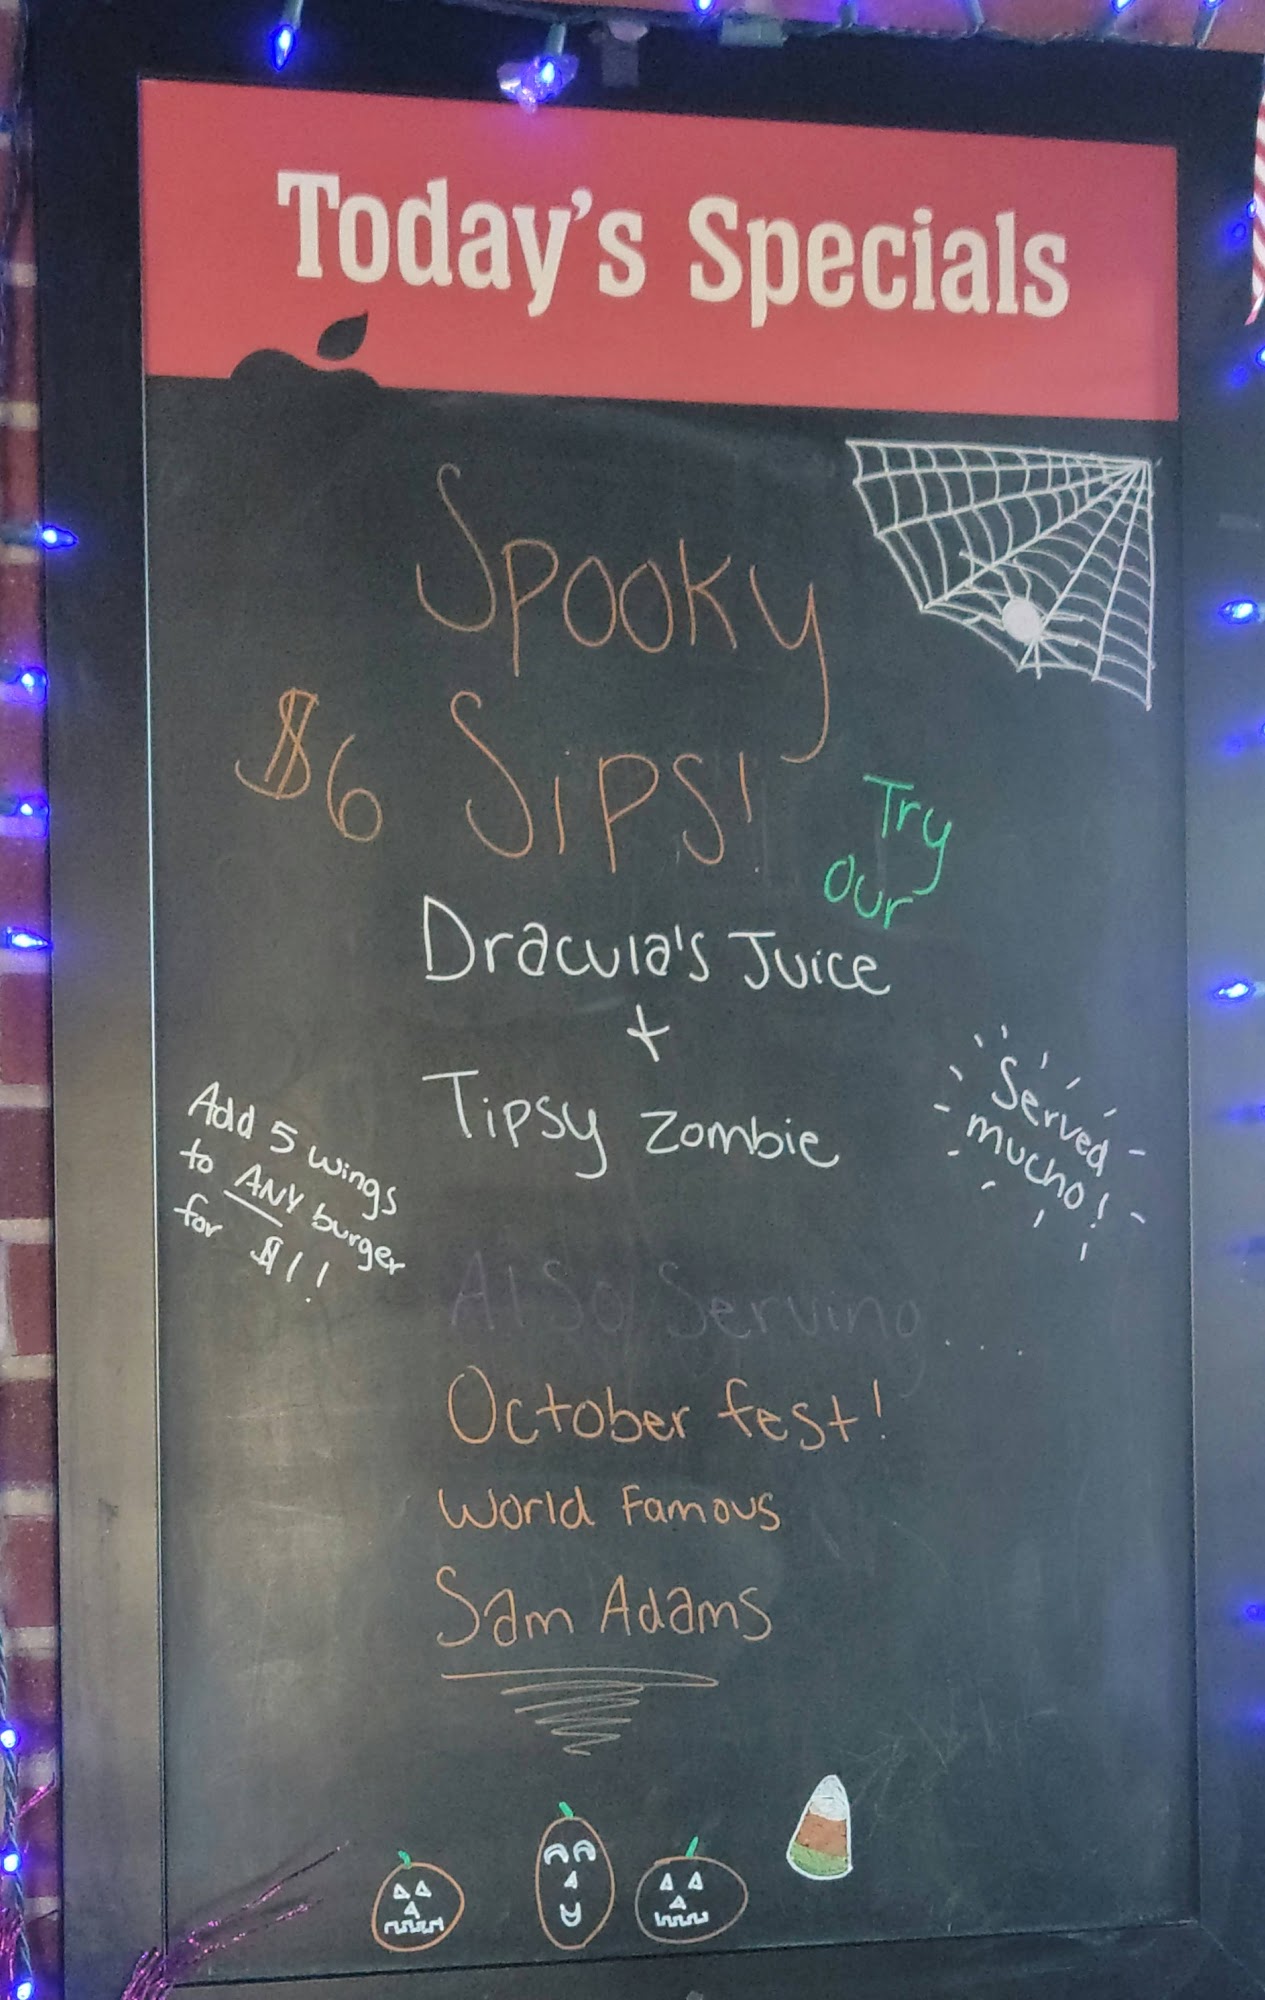 Today's Specials
Spooky
$6 Sips!
Try
our
Dracula's Juice
+
Tipsy Zombie
Served
mucho!
Add 5 wings
to ANY burger
for $1!
Also Serving...
October fest!
World Famous
Sam Adams